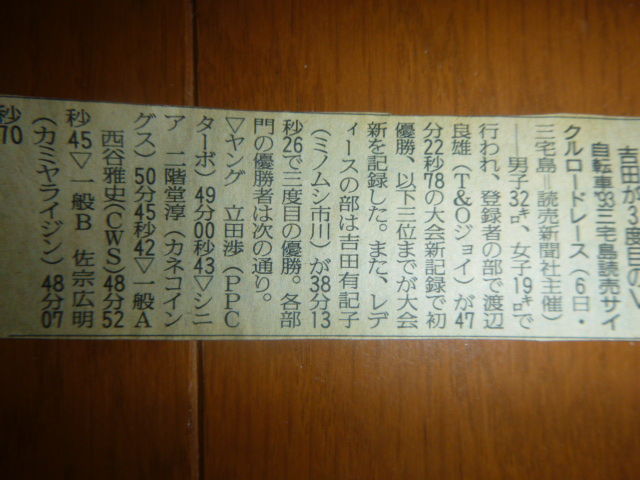 吉田が3度目のV
自転車'93三宅島読売サイ
クルロードレース（6日・
三宅島＝読売新聞社主催）
――男子32㌔、女子19㌔で
行われ、登録者の部で渡辺
良雄（T&Oジョイ）が47
分22秒78の大会新記録で初
優勝、以下三位までが大会
新を記録した。また、レデ
ィースの部は吉田有記子
（ミノムシ市川）が38分13
秒26で三度目の優勝。各部
門の優勝者は次の通り。
▽ヤング 立田渉（PPC
ターボ）49分00秒43▽シニ
ア 二階堂淳（カネコイン
グス）50分45秒42▽一般A
西谷雅史（CWS）48分52
秒45▽一般B 佐宗広明
（カミヤライジン）48分07
秒70